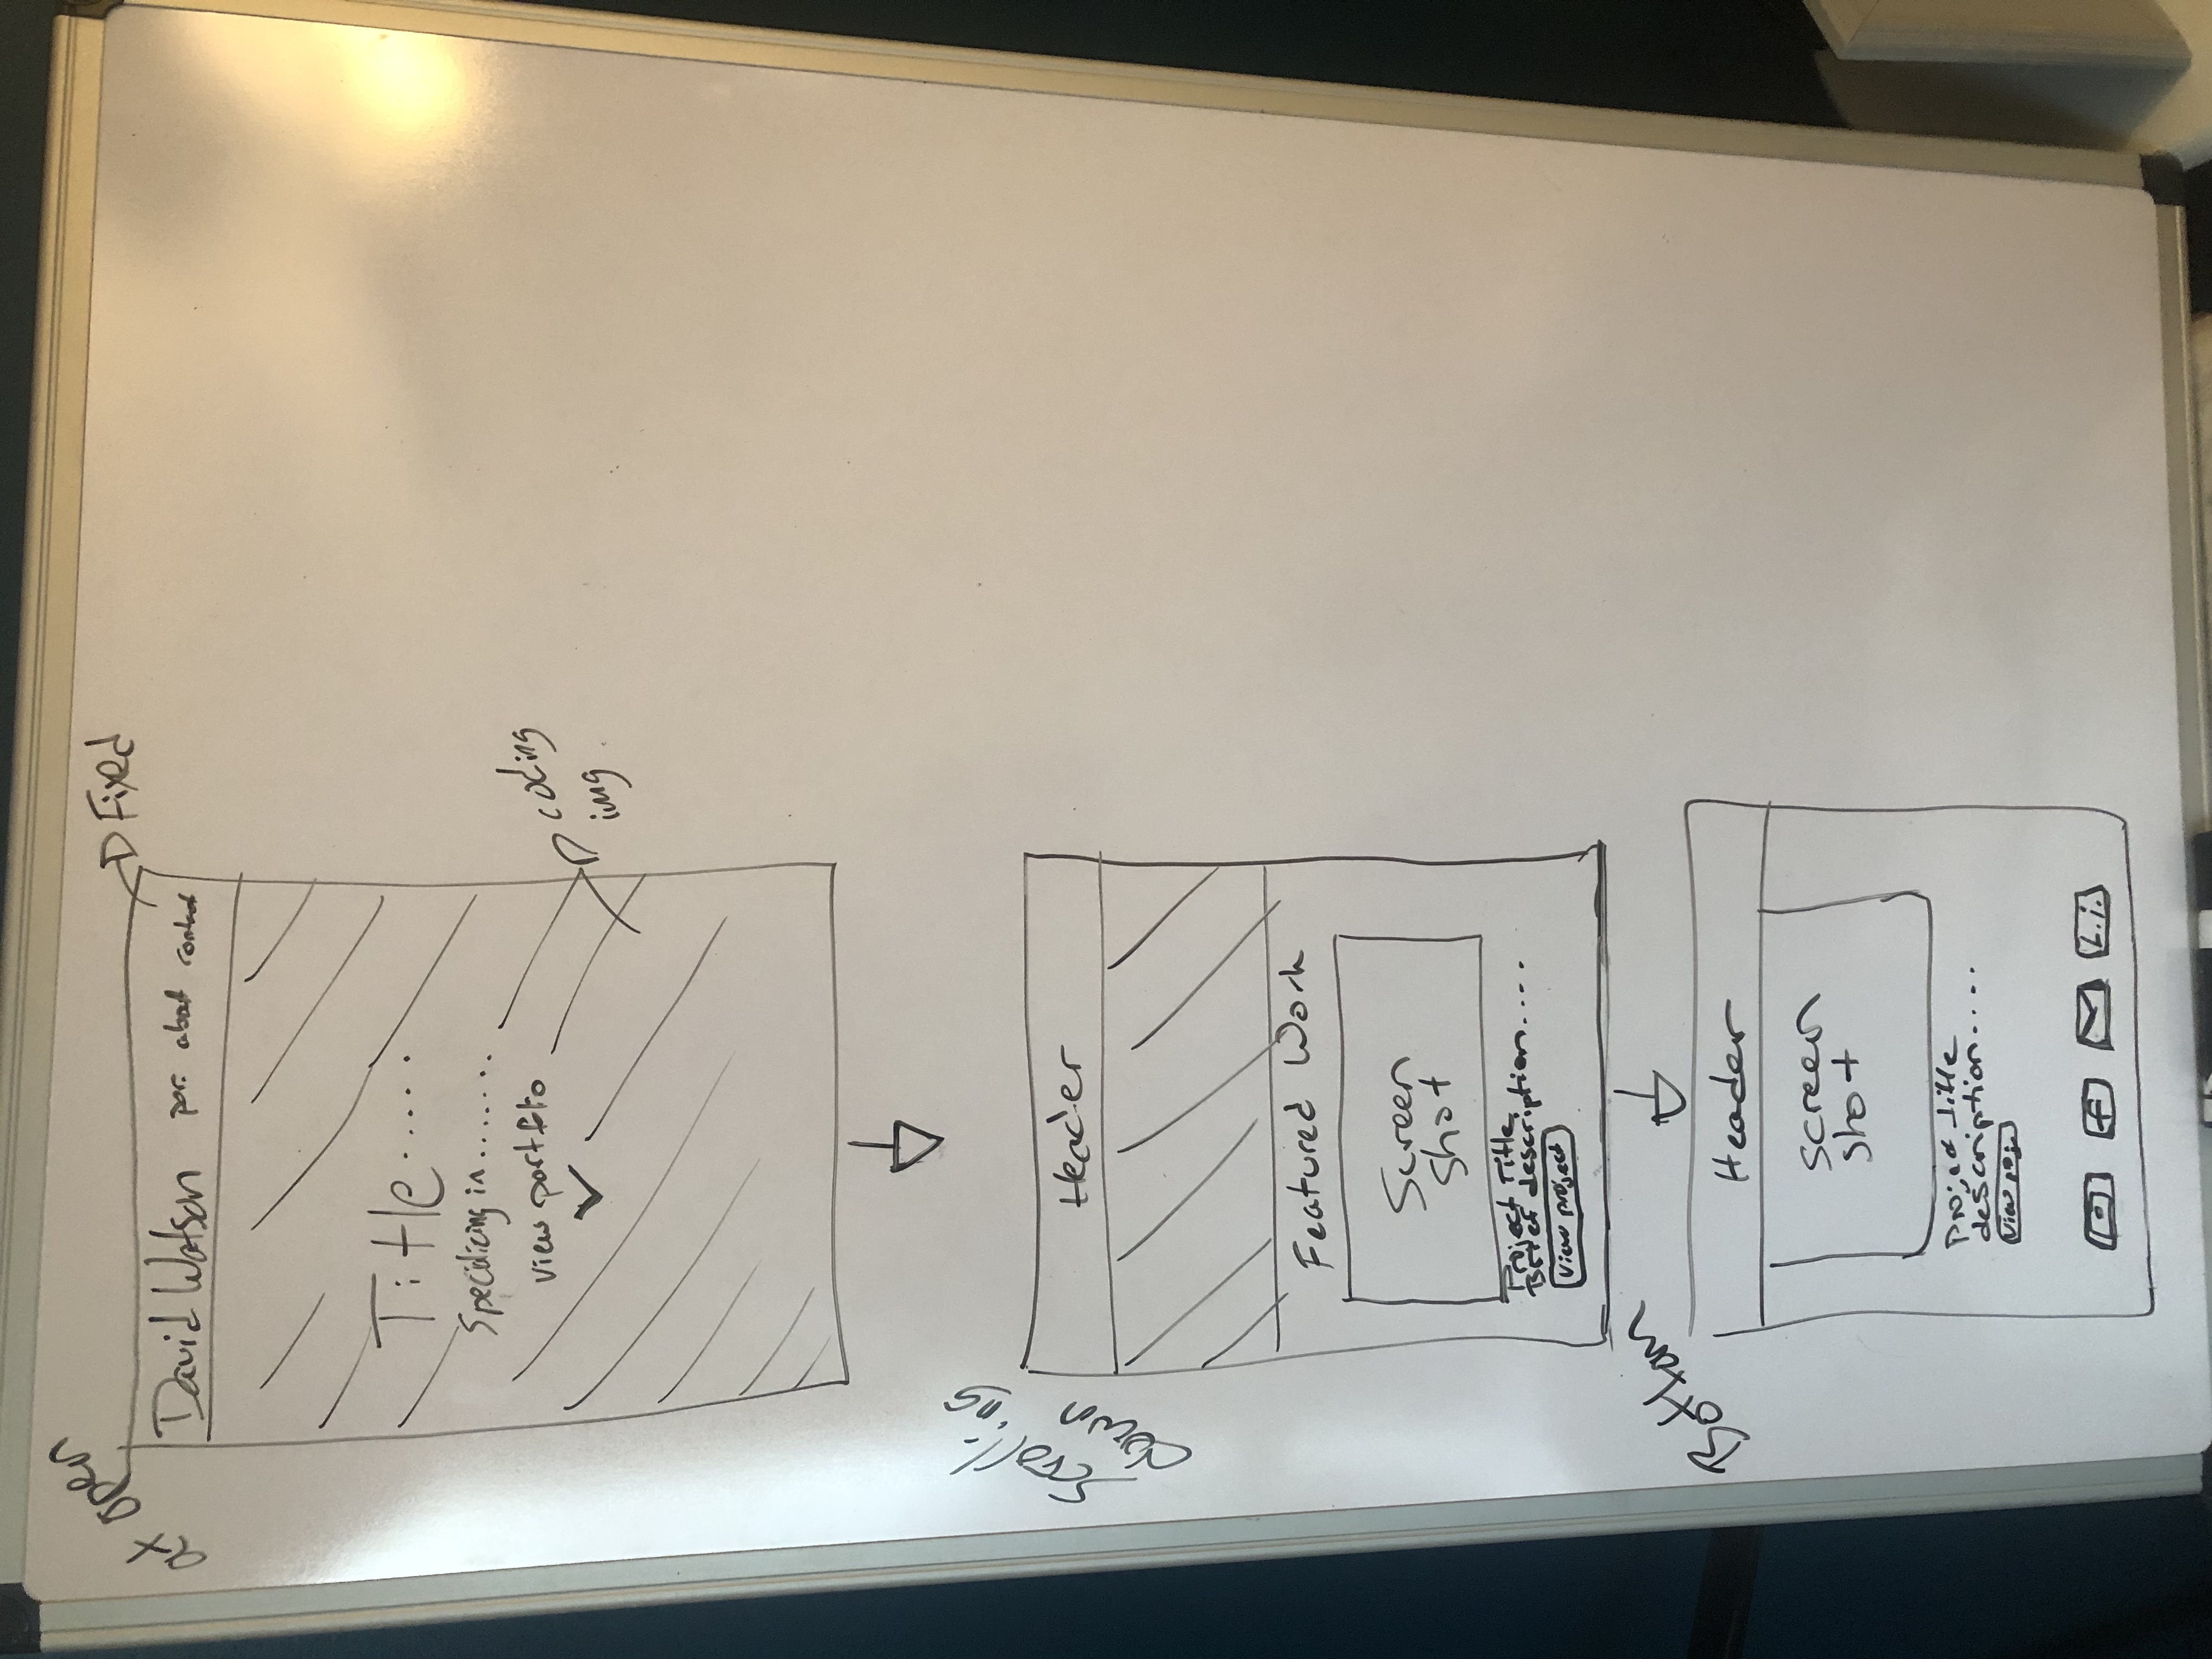 at open
Fixed
David Watson por. about contact
Title.....
Specilicing in.......
view portfolio
coding
img
Scrolling
down
Header
Featured Work
Screen
shot
Project Title
Brief description....
View project
Bottom
Header
screen
shot
Project title
description....
View proj
f
L.i.